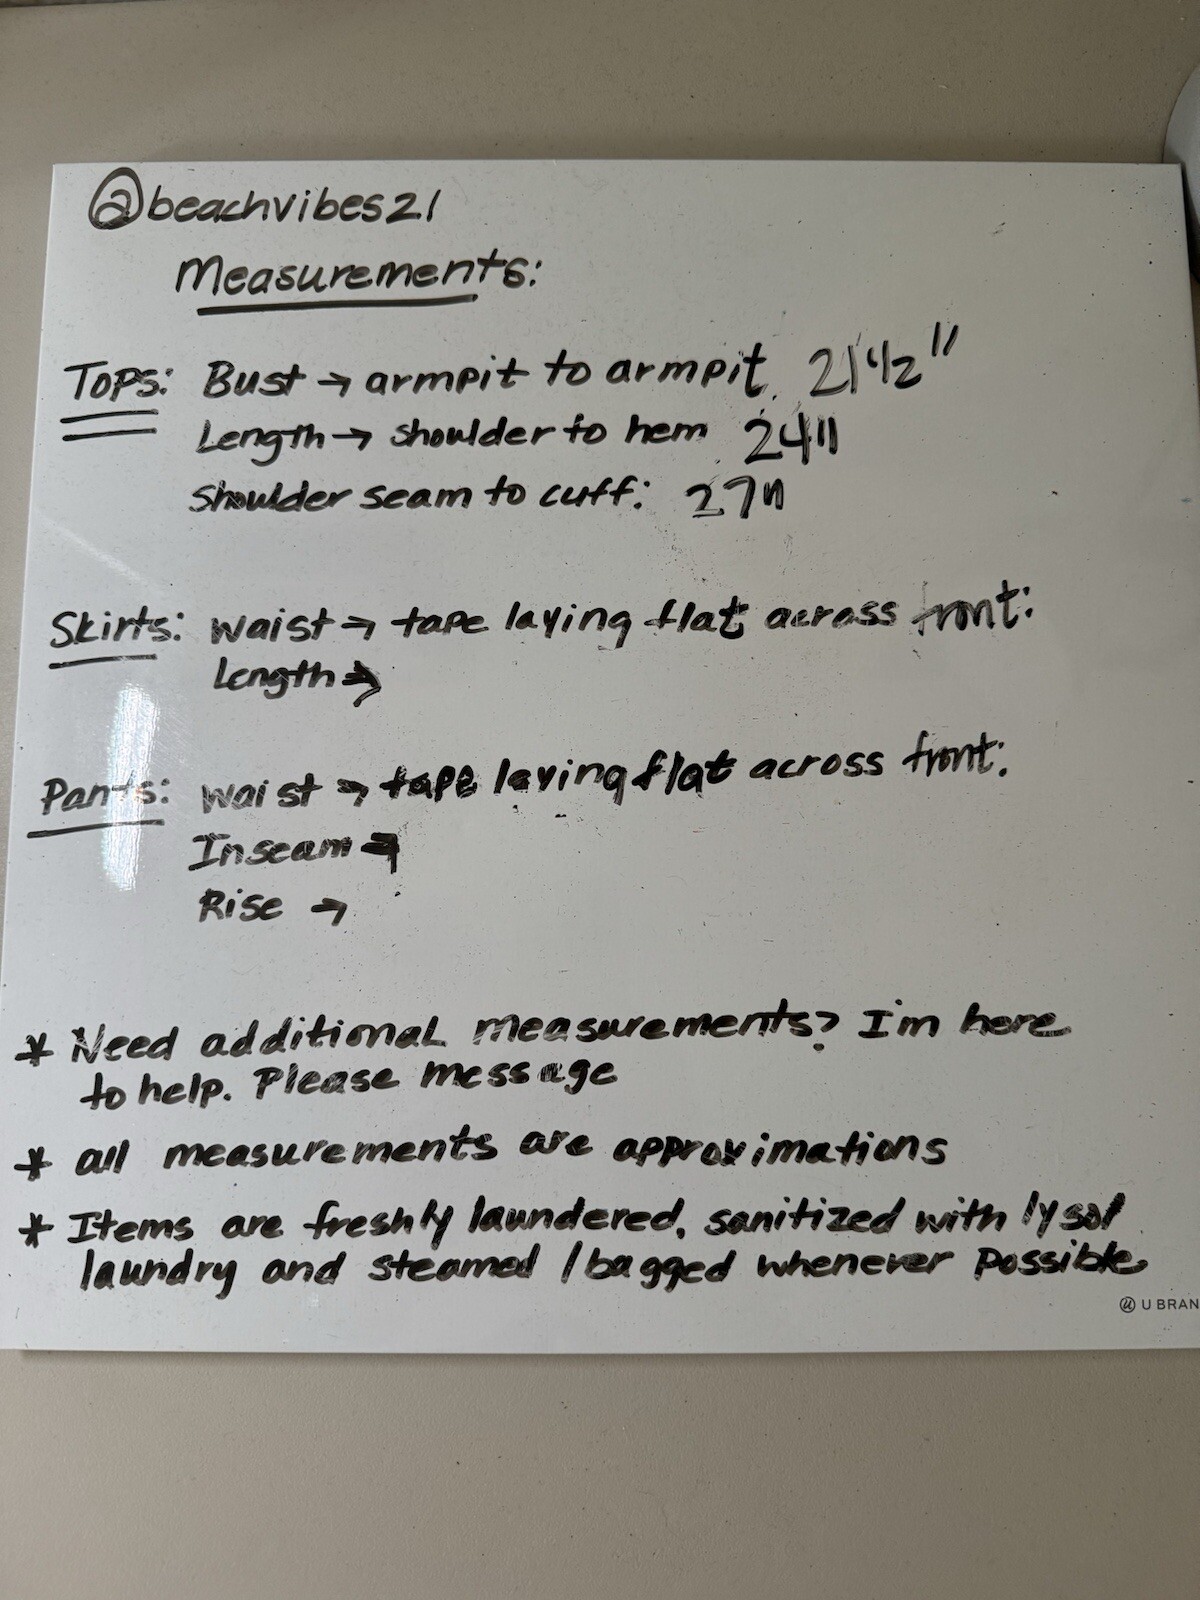 @beachvibes21
Measurements:
Tops: Bust → armpit to armpit 21 1/2"
Length → shoulder to hem 24"
Shoulder seam to cuff: 27"
Skirts: waist → tape laying flat across front:
Length →
Pants: waist → tape laying flat across front:
Inseam →
Rise →
* Need additional measurements? I'm here
to help. Please message
* all measurements are approximations
* Items are freshly laundered, sanitized with lysol
laundry and steamed / bagged whenever possible
U BRAN